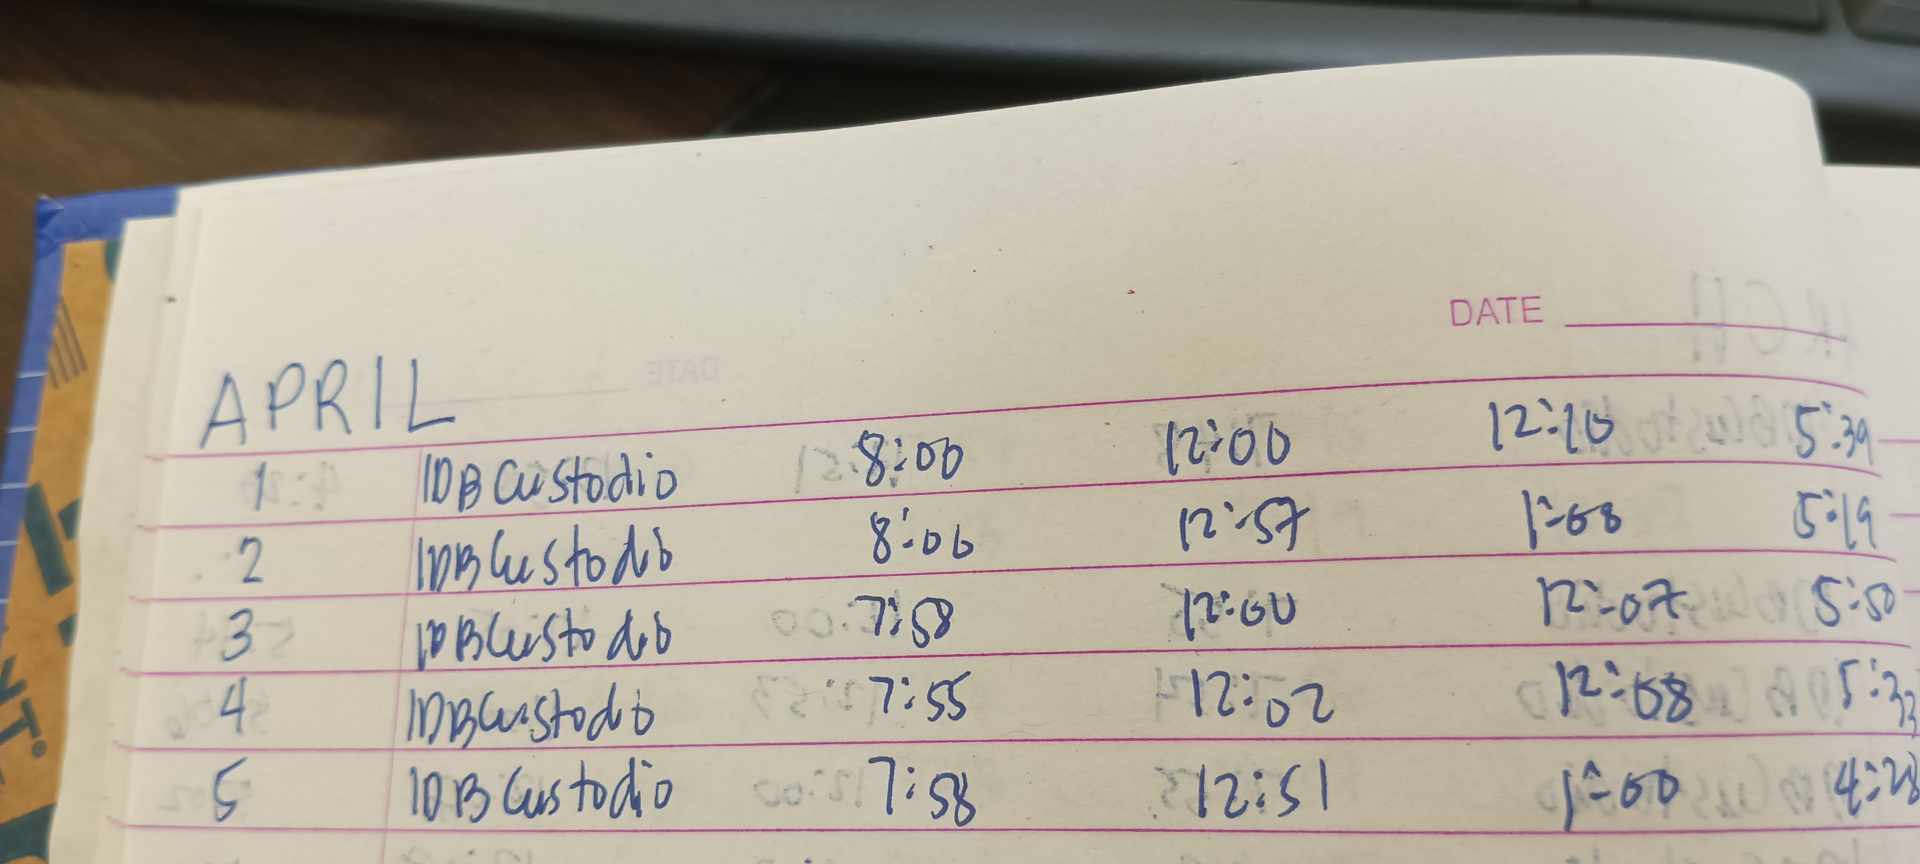 DATE
APRIL
1 IDBCustodio 8:00 12:00 12:10 5:39
2 IDBCustodio 8:06 12:57 1:08 5:19
3 IDBCustodio 7:58 12:00 12:07 5:50
4 IDBCustodio 7:55 12:02 12:08 5:33
5 IDBCustodio 7:58 12:51 1:00 4:28